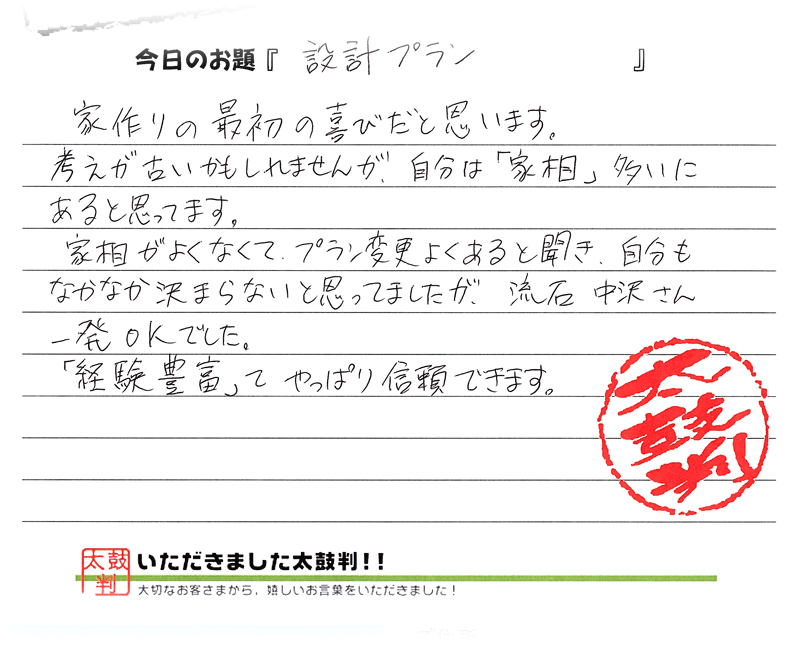 今日のお題『 設計プラン 』
家作りの最初の喜びだと思います。
考えが古いかもしれませんが、自分は「家相」多いに
あると思ってます。
家相がよくなくて、プラン変更よくあると聞き、自分も
なかなか決まらないと思ってましたが、流石 中沢さん
一発OKでした。
「経験豊富」て やっぱり信頼できます。
太
鼓
判
太鼓
判
いただきました太鼓判！！
大切なお客さまから、嬉しいお言葉をいただきました！